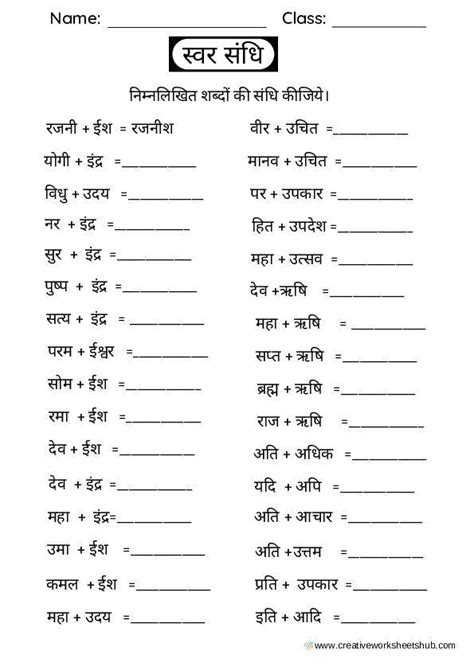 Name: ____________ Class: ____________
स्वर संधि
निम्नलिखित शब्दों की संधि कीजिये।
रजनी + ईश = रजनीश
योगी + इंद्र =__________
विधु + उदय =__________
नर + इंद्र =__________
सुर + इंद्र =__________
पुष्प + इंद्र =__________
सत्य + इंद्र = __________
परम + ईश्वर =__________
सोम + ईश =__________
रमा + ईश =__________
देव + ईश =__________
देव + इंद्र =__________
महा + इंद्र=__________
उमा + ईश =__________
कमल + ईश =__________
महा + उदय =__________
वीर + उचित =__________
मानव + उचित =__________
पर + उपकार =__________
हित + उपदेश =__________
महा + उत्सव =__________
देव +ऋषि =__________
महा + ऋषि = __________
सप्त + ऋषि =__________
ब्रह्म + ऋषि =__________
राज + ऋषि =__________
अति + अधिक =__________
यदि + अपि =__________
अति + आचार =__________
अति +उत्तम =__________
प्रति + उपकार =__________
इति + आदि =__________
www.creativeworksheetshub.com